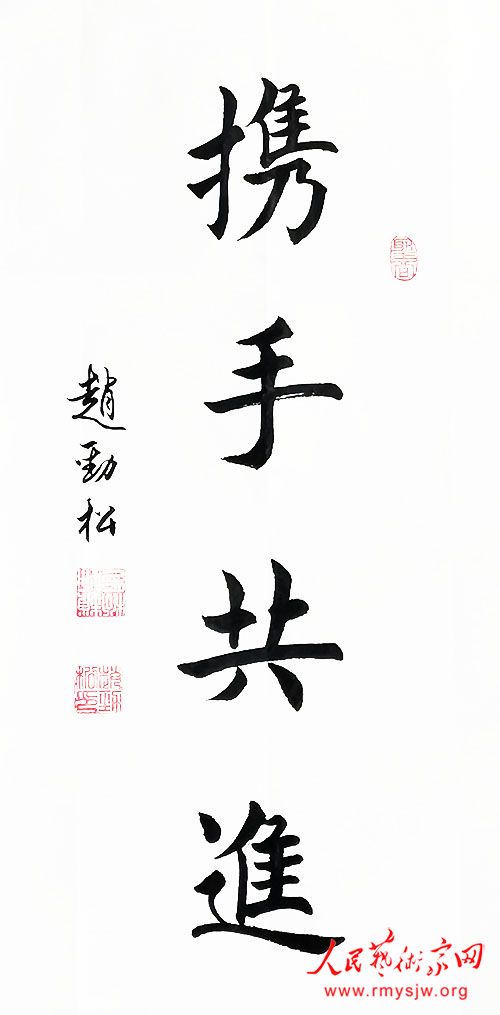 携手共進
趙勁松
人民藝術家网
www.rmysjw.org